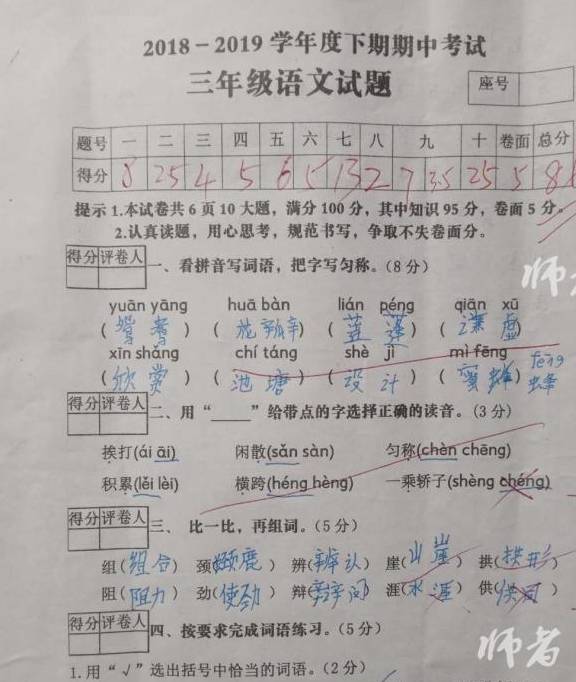 2018－2019学年度下期期中考试
三年级语文试题
座号
题号 一 二 三 四 五 六 七 八 九 十 卷面 总分
得分 8 25 4 5 6 5 13 2 7 3.5 25 5
提示 1.本试卷共6页10大题，满分100分，其中知识95分，卷面5分。
2.认真读题，用心思考，规范书写，争取不失卷面分。
得分 评卷人
一、看拼音写词语，把字写匀称。(8分)
师者
yuān yāng huā bàn lián péng qiān xū
(鸳鸯) (花瓣) (莲蓬) (谦虚)
xīn shǎng chí táng shè jì mì fēng
(欣赏) (池塘) (设计) (蜜蜂) fēng 蜂
得分 评卷人
二、用“____”给带点的字选择正确的读音。(3分)
挨打(ái āi) 闲散(sǎn sàn) 匀称(chèn chēng)
积累(lěi lèi) 横跨(héng hèng) 一乘轿子(shèng chéng)
得分 评卷人
三、 比一比，再组词。(5分)
组(组合) 颈( ) 辨(辨认) 崖(山崖) 拱(拱形)
阻(阻力) 劲(使劲) 辩( ) 涯(水涯) 供( )
得分 评卷人
四、按要求完成词语练习。(5分)
师者
1.用“√”选出括号中恰当的词语。(2分)